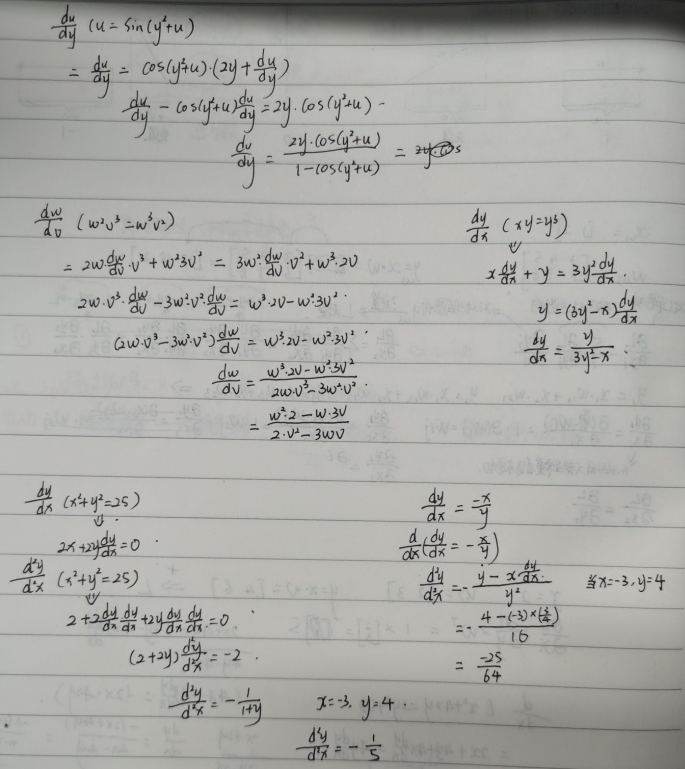 du/dy (u = sin(y²+u)
= du/dy = cos(y²+u)·(2y+du/dy)
du/dy - cos(y²+u)du/dy = 2y·cos(y²+u)
du/dy = 2y·cos(y²+u)/1-cos(y²+u) =
dw/dv (w²v³=w³v²)
= 2w·dw/dv·v³+w²3v² = 3w²·dw/dv·v²+w³·2v
2w·v³·dw/dv-3w²·v²·dw/dv = w³·2v-w²·3v²
(2w·v³-3w²·v²)dw/dv = w³·2v-w²·3v²
dw/dv = w³·2v-w²·3v²/2w·v³-3w²·v²
= w²·2-w·3v/2·v²-3wv
dy/dx (xy=y³)
⇓
x dy/dx + y = 3y² dy/dx.
y = (3y²-x)dy/dx
dy/dx = y/3y²-x.
dy/dx (x²+y²=25)
⇓
2x+2y dy/dx=0
d²y/d²x (x²+y²=25)
⇓
2+2 dy/dx dy/dx+2y dy/dx dy/dx=0
(2+2y) d²y/d²x=-2
d²y/d²x = -1/1+y x=-3, y=4
d²y/d²x = -1/5
dy/dx = -x/y
d/dx(dy/dx = -x/y)
d²y/d²x = -y-x dy/dx/y² 当x=-3, y=4
= -4-(-3)×(3/4)/16
= -25/64